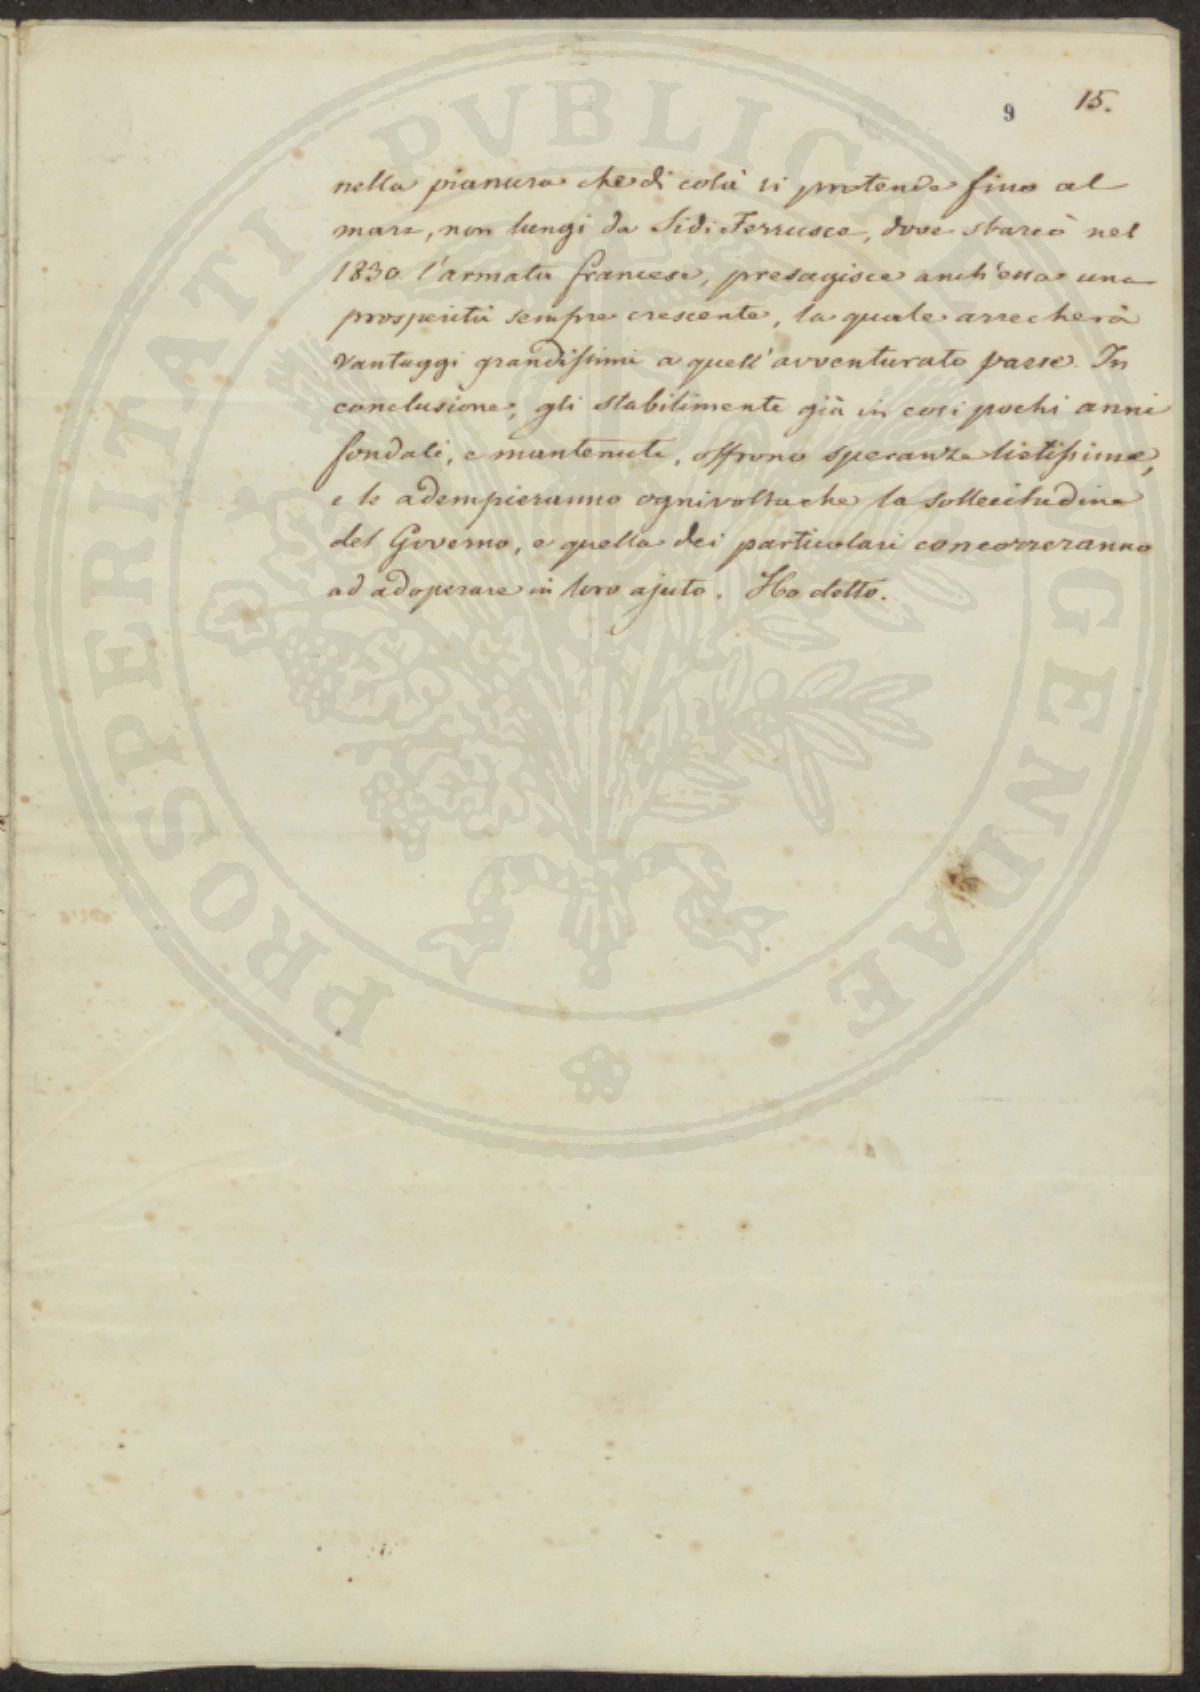 9 15.
nella pianura che di colà si protende fino al
mare, non lungi da Sidi Ferrusce, dove sbarcò nel
1830 l'armata francese, presagisce anch'essa una
prosperità sempre crescente, la quale arrecherà
vantaggi grandissimi a quell'avventurato paese. In
conclusione, gli stabilimenti già in così pochi anni
fondati, e mantenuti, offrono speranze lietissime,
e le adempieranno ognivoltache la sollecitudine
del Governo, e quella dei particolari concorreranno
ad adoperare in loro ajuto. Ho detto.
PROSPERITATI PVBLICAE AVGENDAE